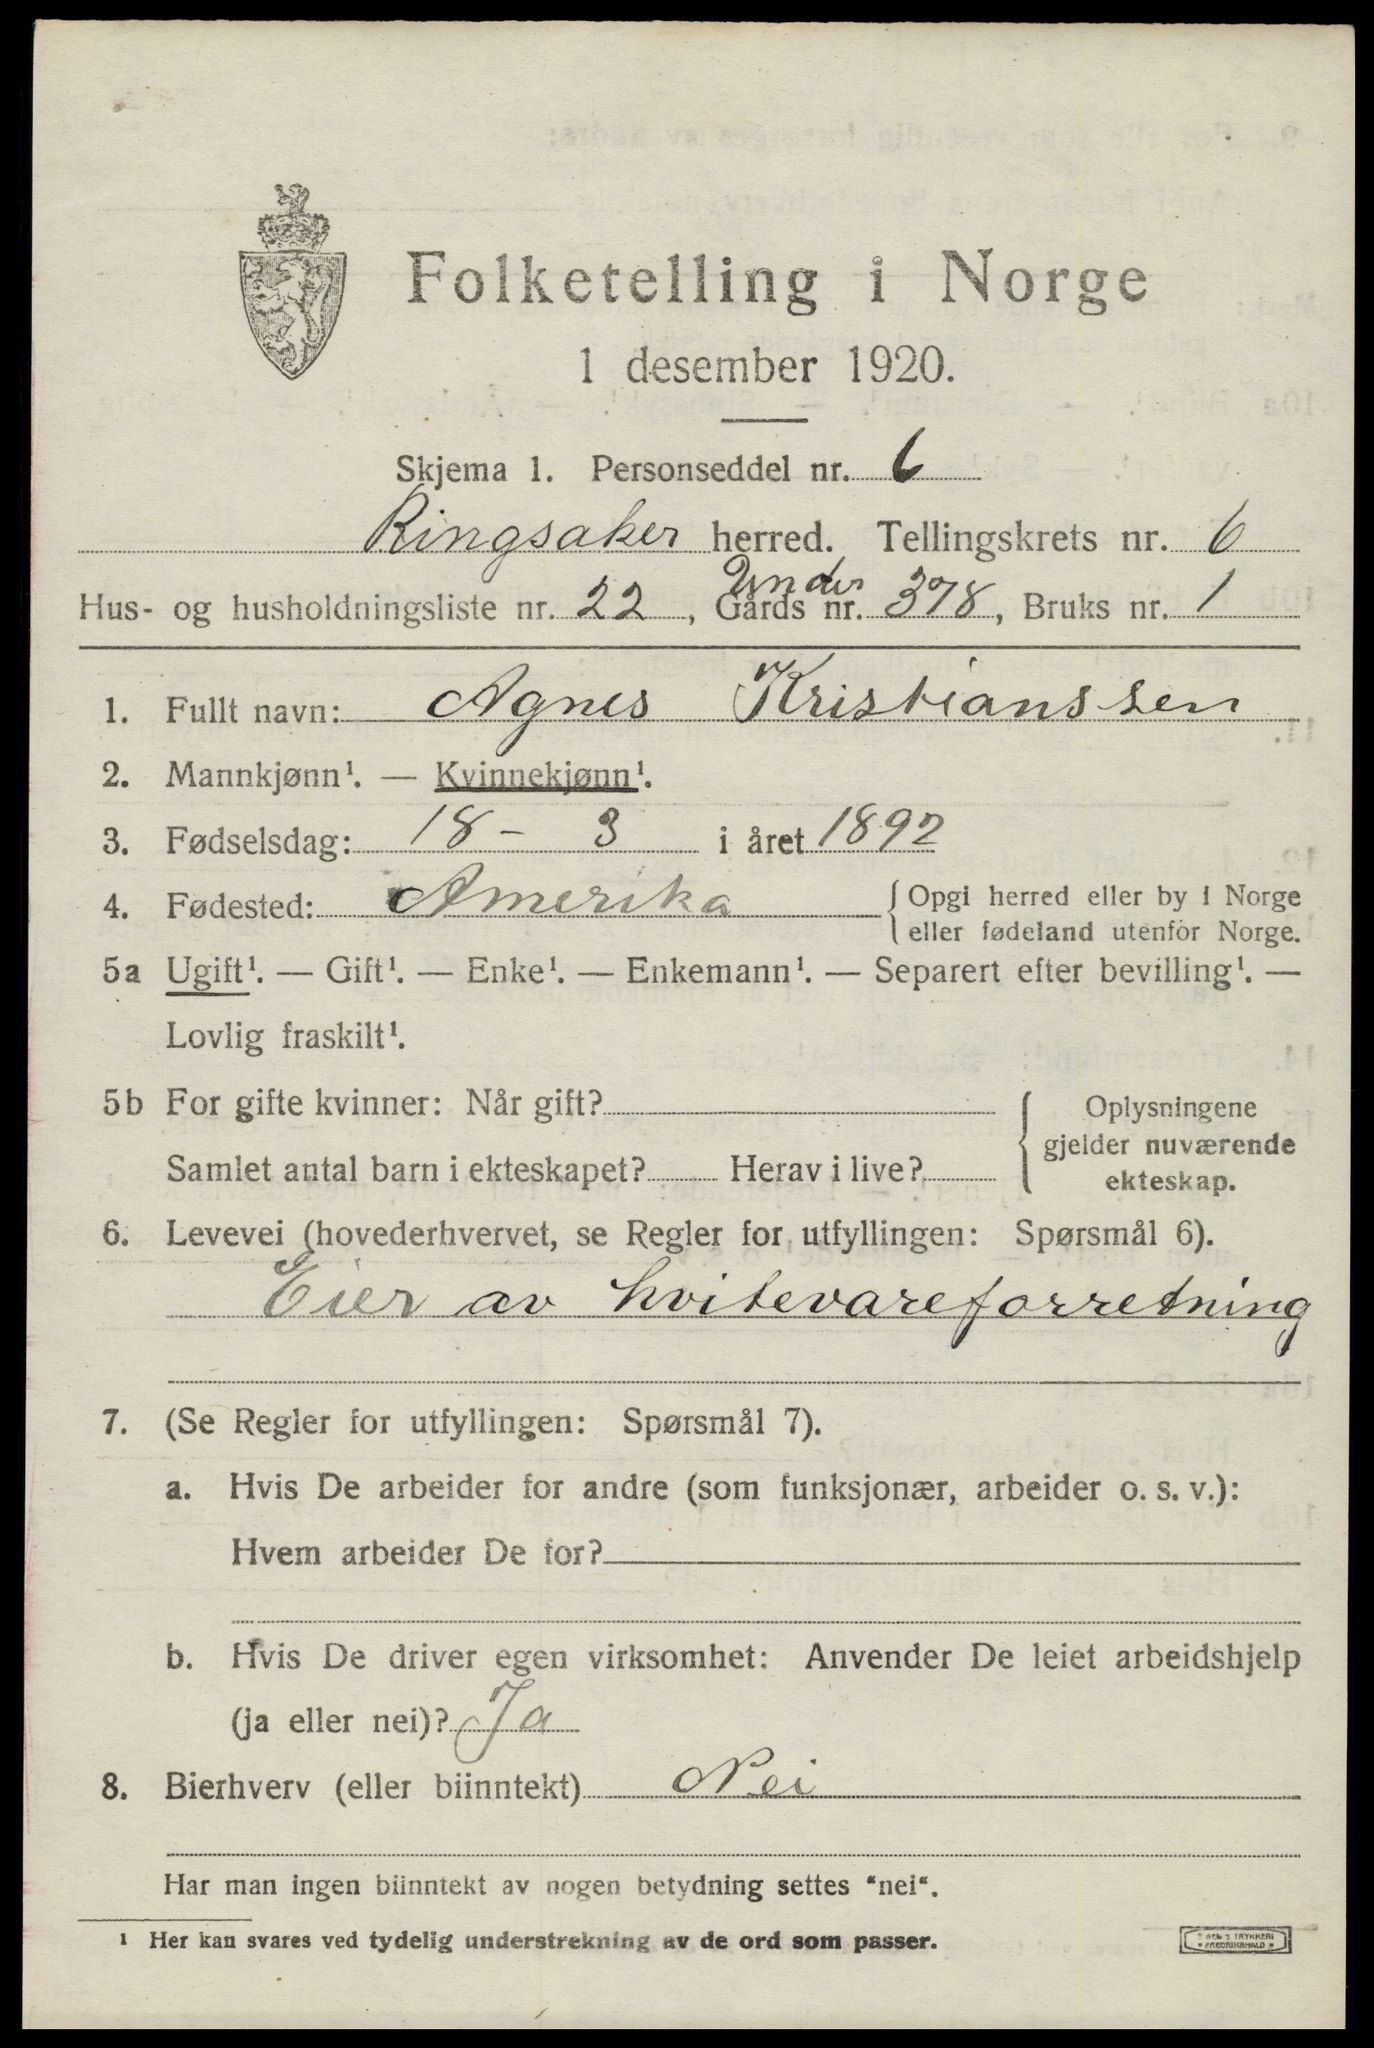 Folketelling i Norge
1 desember 1920.
Skjema 1. Personseddel nr. 6
Ringsaker herred. Tellingskrets nr. 6
Under
Hus- og husholdningsliste nr. 22, Gårds nr. 378, Bruks nr. 1
1. Fullt navn: Agnes Kristianssen
2. Mannkjønn¹. — Kvinnekjønn¹.
3. Fødselsdag: 18 - 3 i året 1892
4. Fødested: Amerika { Opgi herred eller by i Norge
eller fødeland utenfor Norge.
5a Ugift¹. — Gift¹. — Enke¹. — Enkemann¹. — Separert efter bevilling¹. —
Lovlig fraskilt¹.
5b For gifte kvinner: Når gift? { Oplysningene
gjelder nuværende
Samlet antal barn i ekteskapet? Herav i live? ekteskap.
6. Levevei (hovederhvervet, se Regler for utfyllingen: Spørsmål 6).
Eier av hvitevareforretning
7. (Se Regler for utfyllingen: Spørsmål 7).
a. Hvis De arbeider for andre (som funksjonær, arbeider o. s. v.):
Hvem arbeider De for?
b. Hvis De driver egen virksomhet: Anvender De leiet arbeidshjelp
(ja eller nei)? Ja
8. Bierhverv (eller biinntekt) Nei
Har man ingen biinntekt av nogen betydning settes "nei".
¹ Her kan svares ved tydelig understrekning av de ord som passer.
TRYKKERI
FREDRIKSHALD